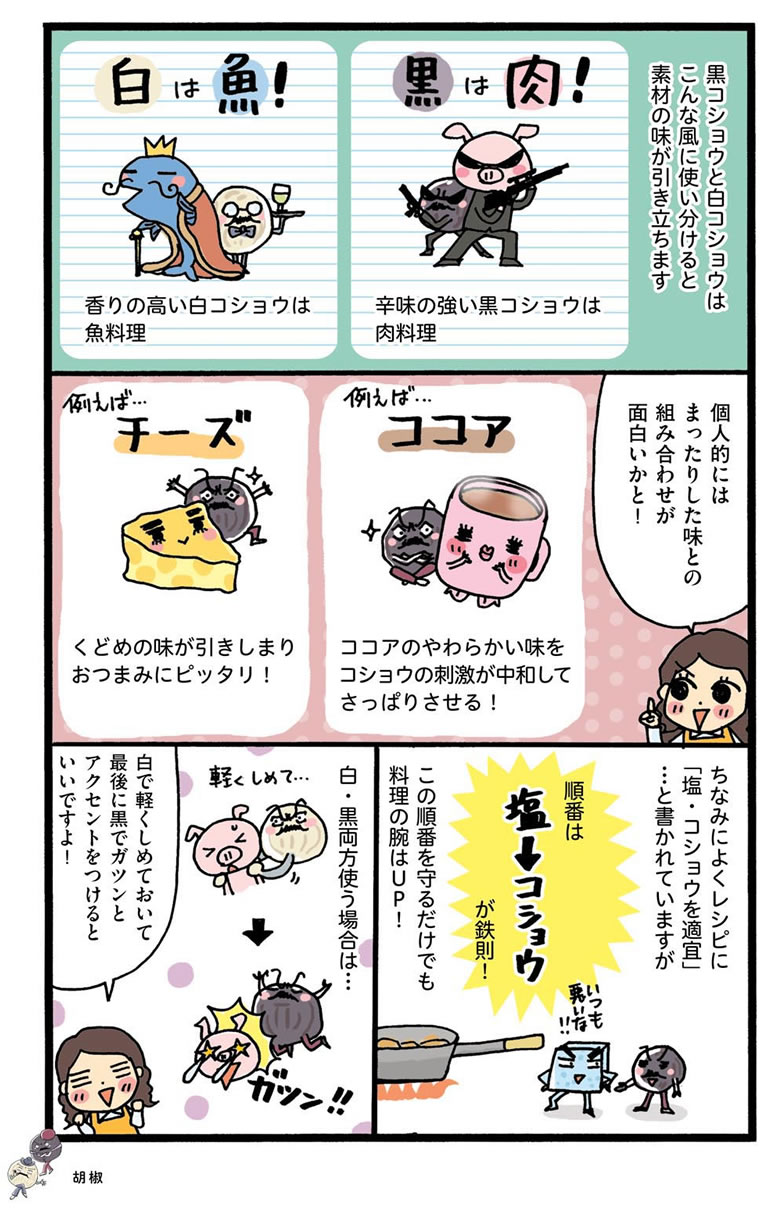 黒コショウと白コショウは
こんな風に使い分けると
素材の味が引き立ちます
黒は肉！
辛味の強い黒コショウは
肉料理
白は魚！
香りの高い白コショウは
魚料理
個人的には
まったりした味との
組み合わせが
面白いかと！
例えば…
ココア
ココアのやわらかい味を
コショウの刺激が中和して
さっぱりさせる！
例えば…
チーズ
くどめの味が引きしまり
おつまみにピッタリ！
ちなみによくレシピに
「塩・コショウを適宜」
…と書かれていますが
順番は
塩→コショウ
が鉄則！
この順番を守るだけでも
料理の腕はUP！
いつも
悪いな
!!
白・黒両方使う場合は…
軽くしめて…
ガツン!!
白で軽くしめておいて
最後に黒でガツンと
アクセントをつけると
いいですよ！
胡椒